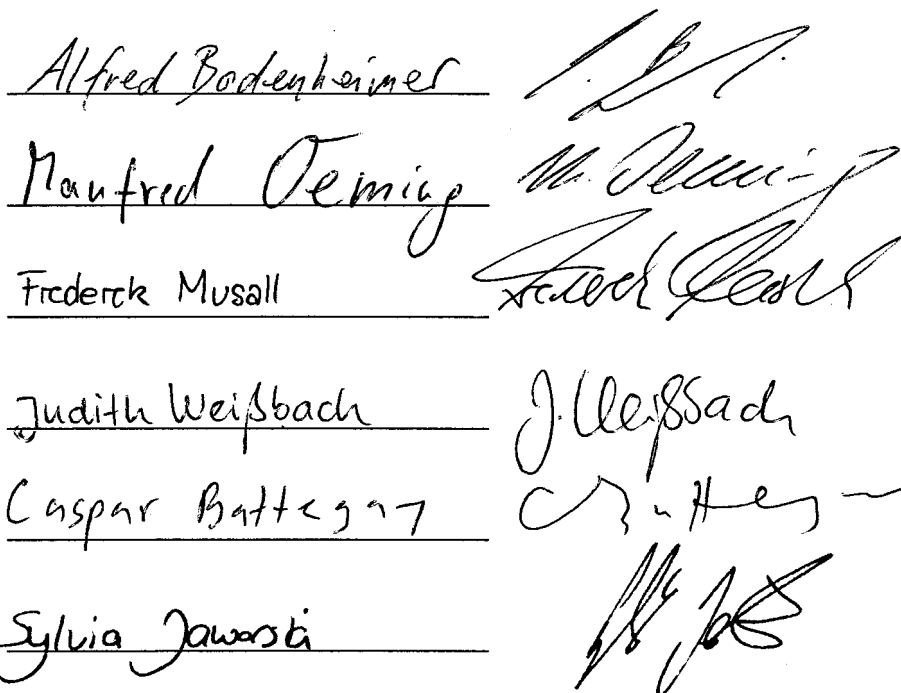 Alfred Bodenheimer
Manfred Oeming M. Oeming
Frederek Musall
Judith Weißbach J. Weißbach
Caspar Battegay C. Battegay
Sylvia Jaworski